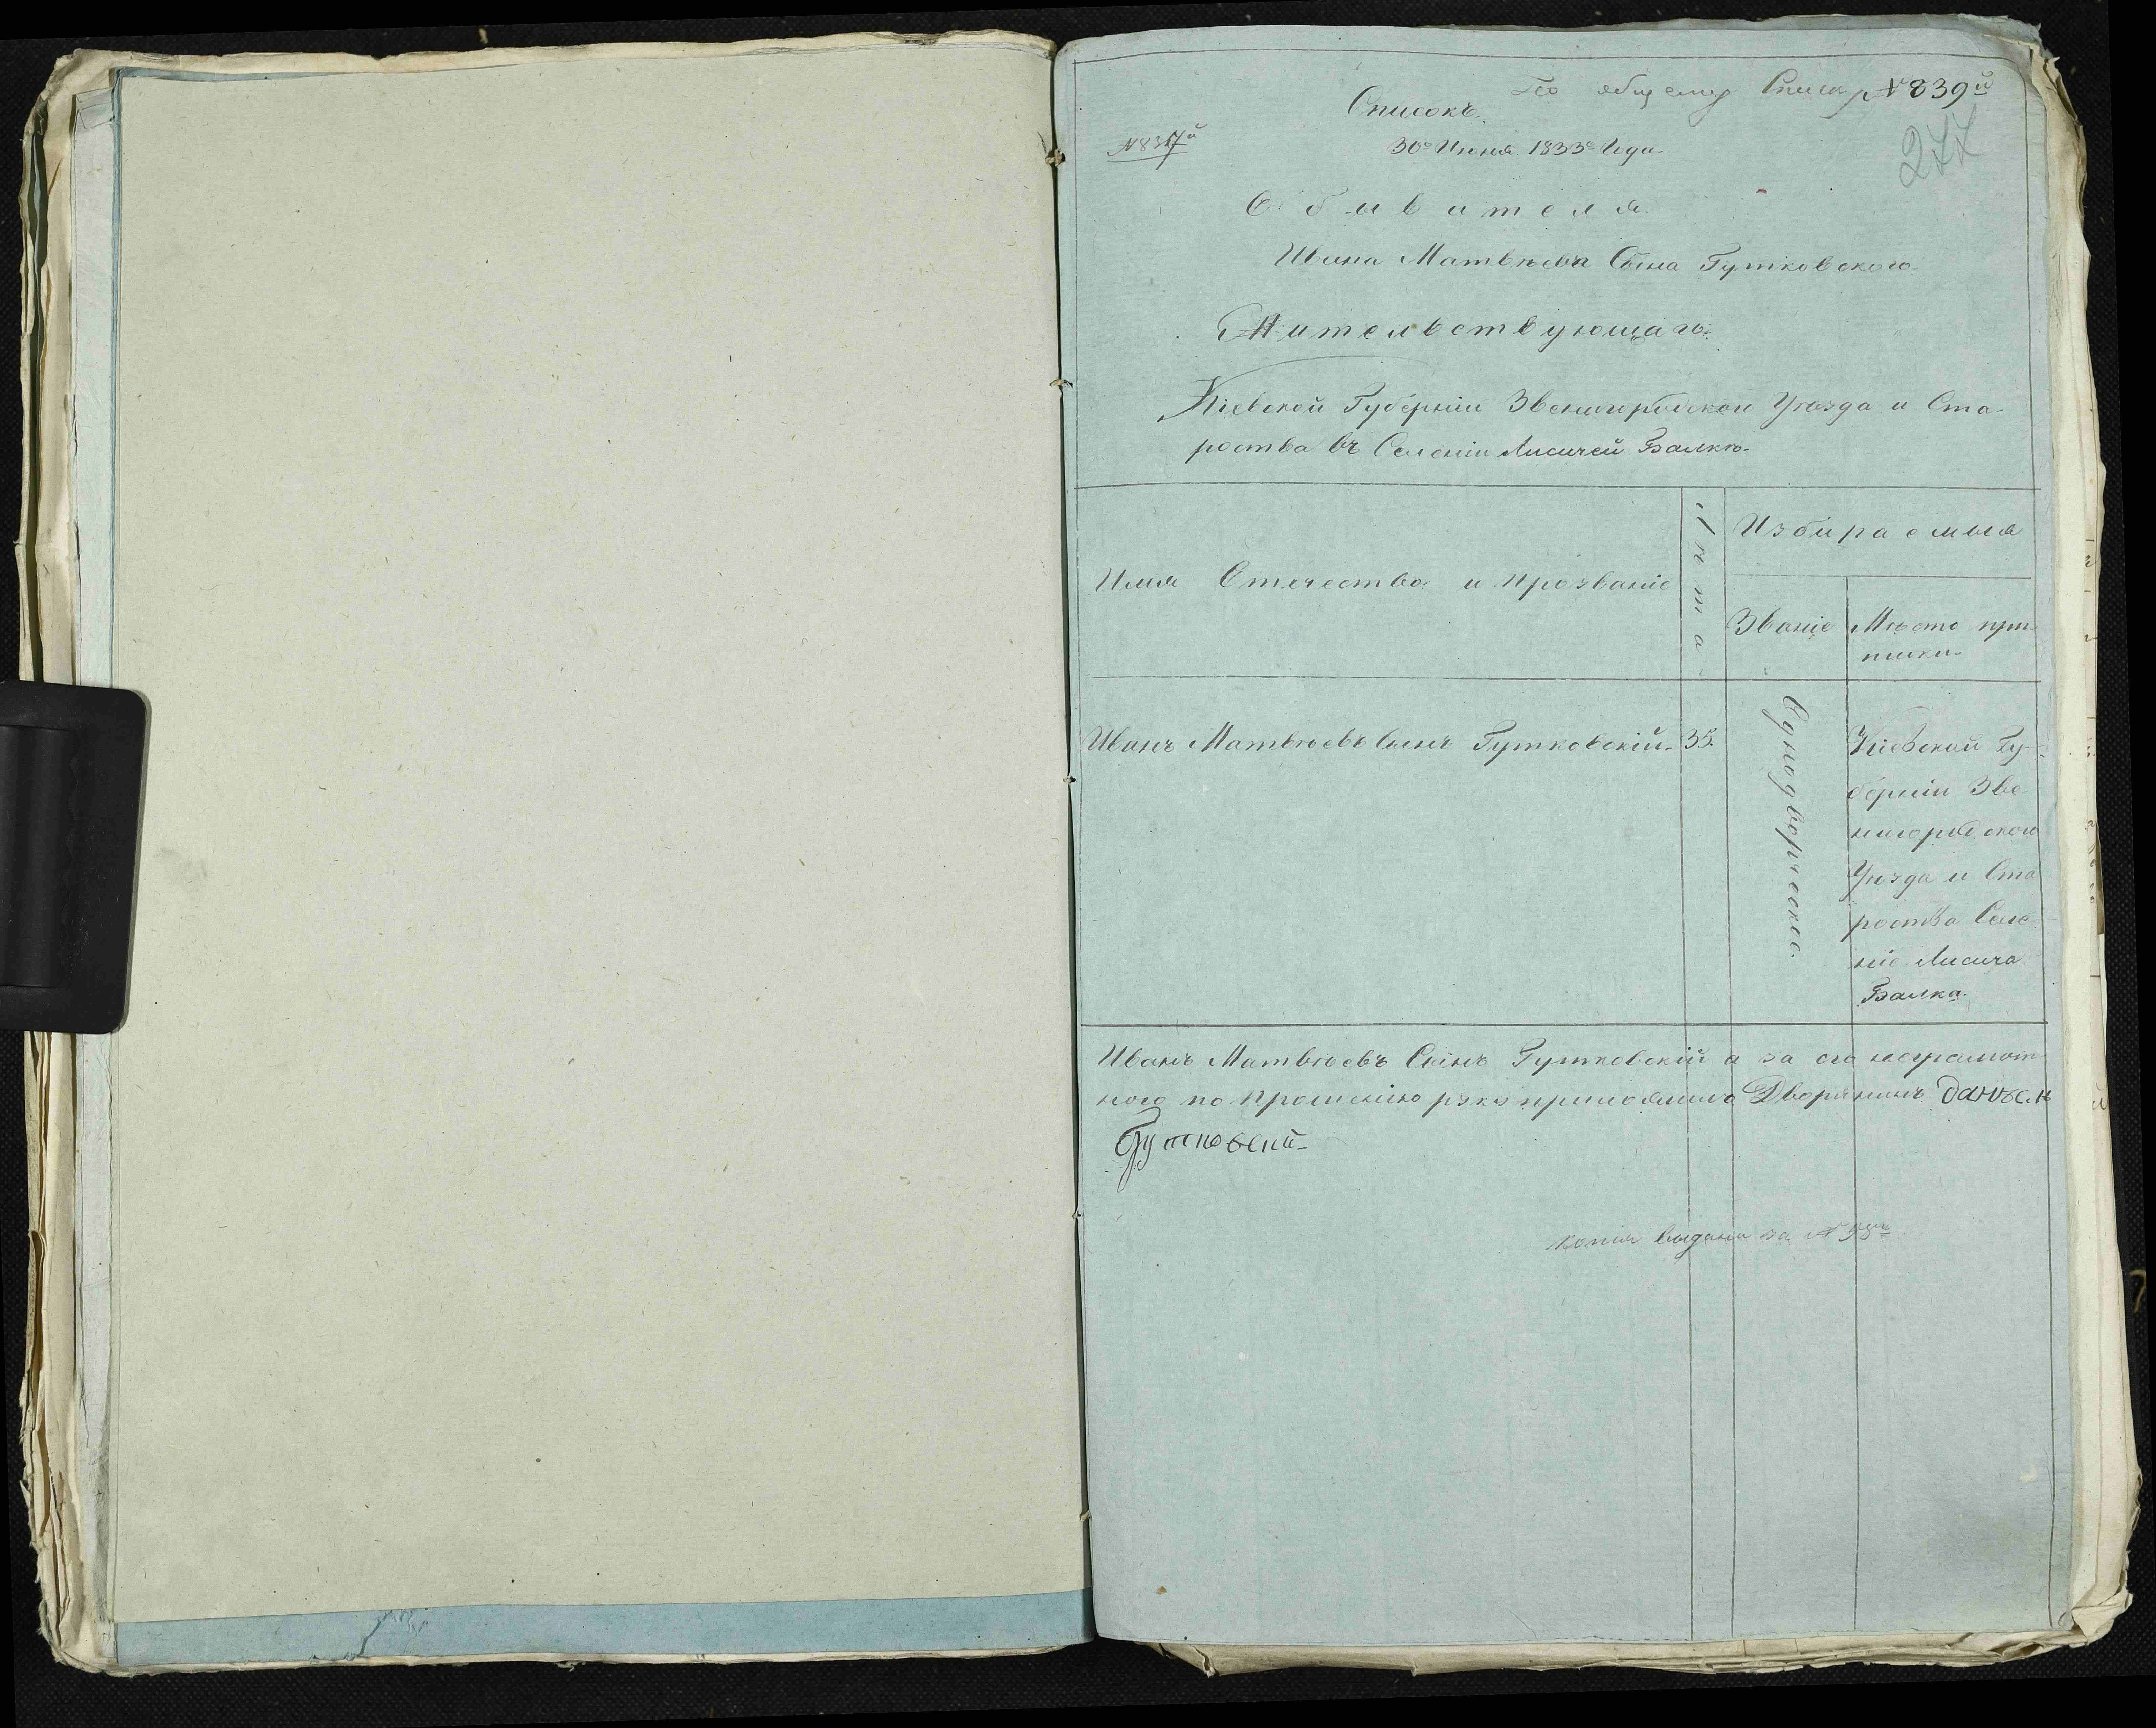 По общему Списку № 839й
Списокъ.
№ 837й
30го Июня 1833го Года
277
Обывателя
Ивана Матвѣева Сына Гутковского
Жительствующаго
Кіевской Губерніи Звенигородского Уѣзда и Ста-
роства въ Селеніи Лисичей Балкѣ
Имя Отечество и Прозваніе
Лѣта
Избираемыя
Званіе
Мѣсто при-
писки
Иванъ Матвѣевъ Сынъ Гутковскій
35.
Однодворческое
Кіевской Гу-
берніи Зве
нигородского
Уѣзда и Ста
роства Селе
ніе Лисича
Балка.
Иванъ Матвѣевъ Сынъ Гутковскій а за его неграмот
ного по прошенію руку приложилъ Дворянинъ
Гутковскій
копія выдана за №